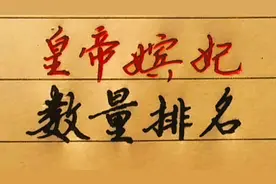 皇帝嫔妃
数量排名